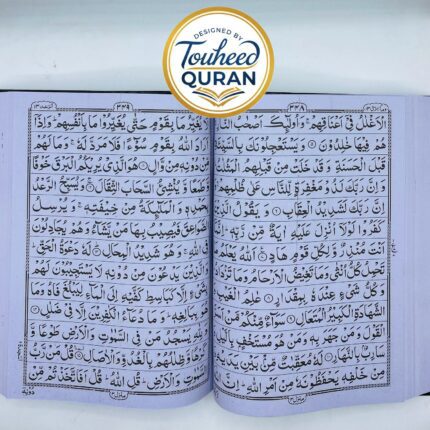 DESIGNED BY
Touheed
QURAN
۲۴۸
اَلۡاَغۡلٰلُ فِیۡۤ اَعۡنَاقِهِمۡ ۚ وَاُولٰٓئِكَ اَصۡحٰبُ النَّا
هُمۡ فِیۡهَا خٰلِدُوۡنَ وَیَسۡتَعۡجِلُوۡنَكَ بِالسَّیِّئَةِ
قَبۡلَ الۡحَسَنَةِ وَقَدۡ خَلَتۡ مِنۡ قَبۡلِهِمُ الۡمَثُلٰتُ
وَ اِنَّ رَبَّكَ لَذُوۡ مَغۡفِرَةٍ لِّلنَّاسِ عَلٰی ظُلۡمِهِمۡ
اِنَّ رَبَّكَ لَشَدِیۡدُ الۡعِقَابِ وَ یَقُوۡلُ الَّذِیۡنَ
كَفَرُوۡا لَوۡلَاۤ اُنۡزِلَ عَلَیۡهِ اٰیَةٌ مِّنۡ رَّبِّهٖ ؕ
اَنۡتَ مُنۡذِرٌ وَّ لِكُلِّ قَوۡمٍ هَادٍ اَللّٰهُ یَعۡلَمُ
تَحۡمِلُ كُلُّ اُنۡثٰی وَمَا تَغِیۡضُ الۡاَرۡحَامُ وَمَا
وَ كُلُّ شَیۡءٍ عِنۡدَهٗ بِمِقۡدَارٍ عٰلِمُ الۡغَیۡبِ
الشَّهَادَةِ الۡكَبِیۡرُ الۡمُتَعَالِ سَوَآءٌ مِّنۡكُمۡ مَّنۡ
الۡقَوۡلَ وَمَنۡ جَهَرَ بِهٖ وَمَنۡ هُوَ مُسۡتَخۡفٍۭ بِالَّیۡلِ
سَارِبٌۢ بِالنَّهَارِ لَهٗ مُعَقِّبٰتٌ مِّنۡۢ بَیۡنِ یَدَیۡهِ
مِنۡ خَلۡفِهٖ یَحۡفَظُوۡنَهٗ مِنۡ اَمۡرِ اللّٰهِ ؕ اِنَّ
۲۴۹
یُغَیِّرُ مَا بِقَوۡمٍ حَتّٰی یُغَیِّرُوۡا مَا بِاَنۡفُسِهِمۡ ؕ وَاِذَاۤ
اَرَادَ اللّٰهُ بِقَوۡمٍ سُوۡٓءًا فَلَا مَرَدَّ لَهٗ ۚ وَمَا لَهُمۡ
مِّنۡ دُوۡنِهٖ مِنۡ وَّالٍ هُوَ الَّذِیۡ یُرِیۡكُمُ الۡبَرۡقَ خَوۡفًا
وَّ طَمَعًا وَّ یُنۡشِئُ السَّحَابَ الثِّقَالَ وَ یُسَبِّحُ الرَّعۡدُ
بِحَمۡدِهٖ وَ الۡمَلٰٓئِكَةُ مِنۡ خِیۡفَتِهٖ ۚ وَ یُرۡسِلُ
الصَّوَاعِقَ فَیُصِیۡبُ بِهَا مَنۡ یَّشَآءُ وَ هُمۡ یُجَادِلُوۡنَ
فِی اللّٰهِ ۚ وَ هُوَ شَدِیۡدُ الۡمِحَالِ لَهٗ دَعۡوَةُ الۡحَقِّ ؕ
وَ الَّذِیۡنَ یَدۡعُوۡنَ مِنۡ دُوۡنِهٖ لَا یَسۡتَجِیۡبُوۡنَ لَهُمۡ
بِشَیۡءٍ اِلَّا كَبَاسِطِ كَفَّیۡهِ اِلَی الۡمَآءِ لِیَبۡلُغَ فَاهُ وَمَا
هُوَ بِبَالِغِهٖ ؕ وَمَا دُعَآءُ الۡكٰفِرِیۡنَ اِلَّا فِیۡ ضَلٰلٍ
وَ لِلّٰهِ یَسۡجُدُ مَنۡ فِی السَّمٰوٰتِ وَ الۡاَرۡضِ طَوۡعًا وَّ
كَرۡهًا وَّ ظِلٰلُهُمۡ بِالۡغُدُوِّ وَ الۡاٰصَالِ قُلۡ مَنۡ رَّبُّ
السَّمٰوٰتِ وَ الۡاَرۡضِ ؕ قُلِ اللّٰهُ ؕ قُلۡ اَفَاتَّخَذۡتُمۡ مِّنۡ
دُوۡنِهٖۤ